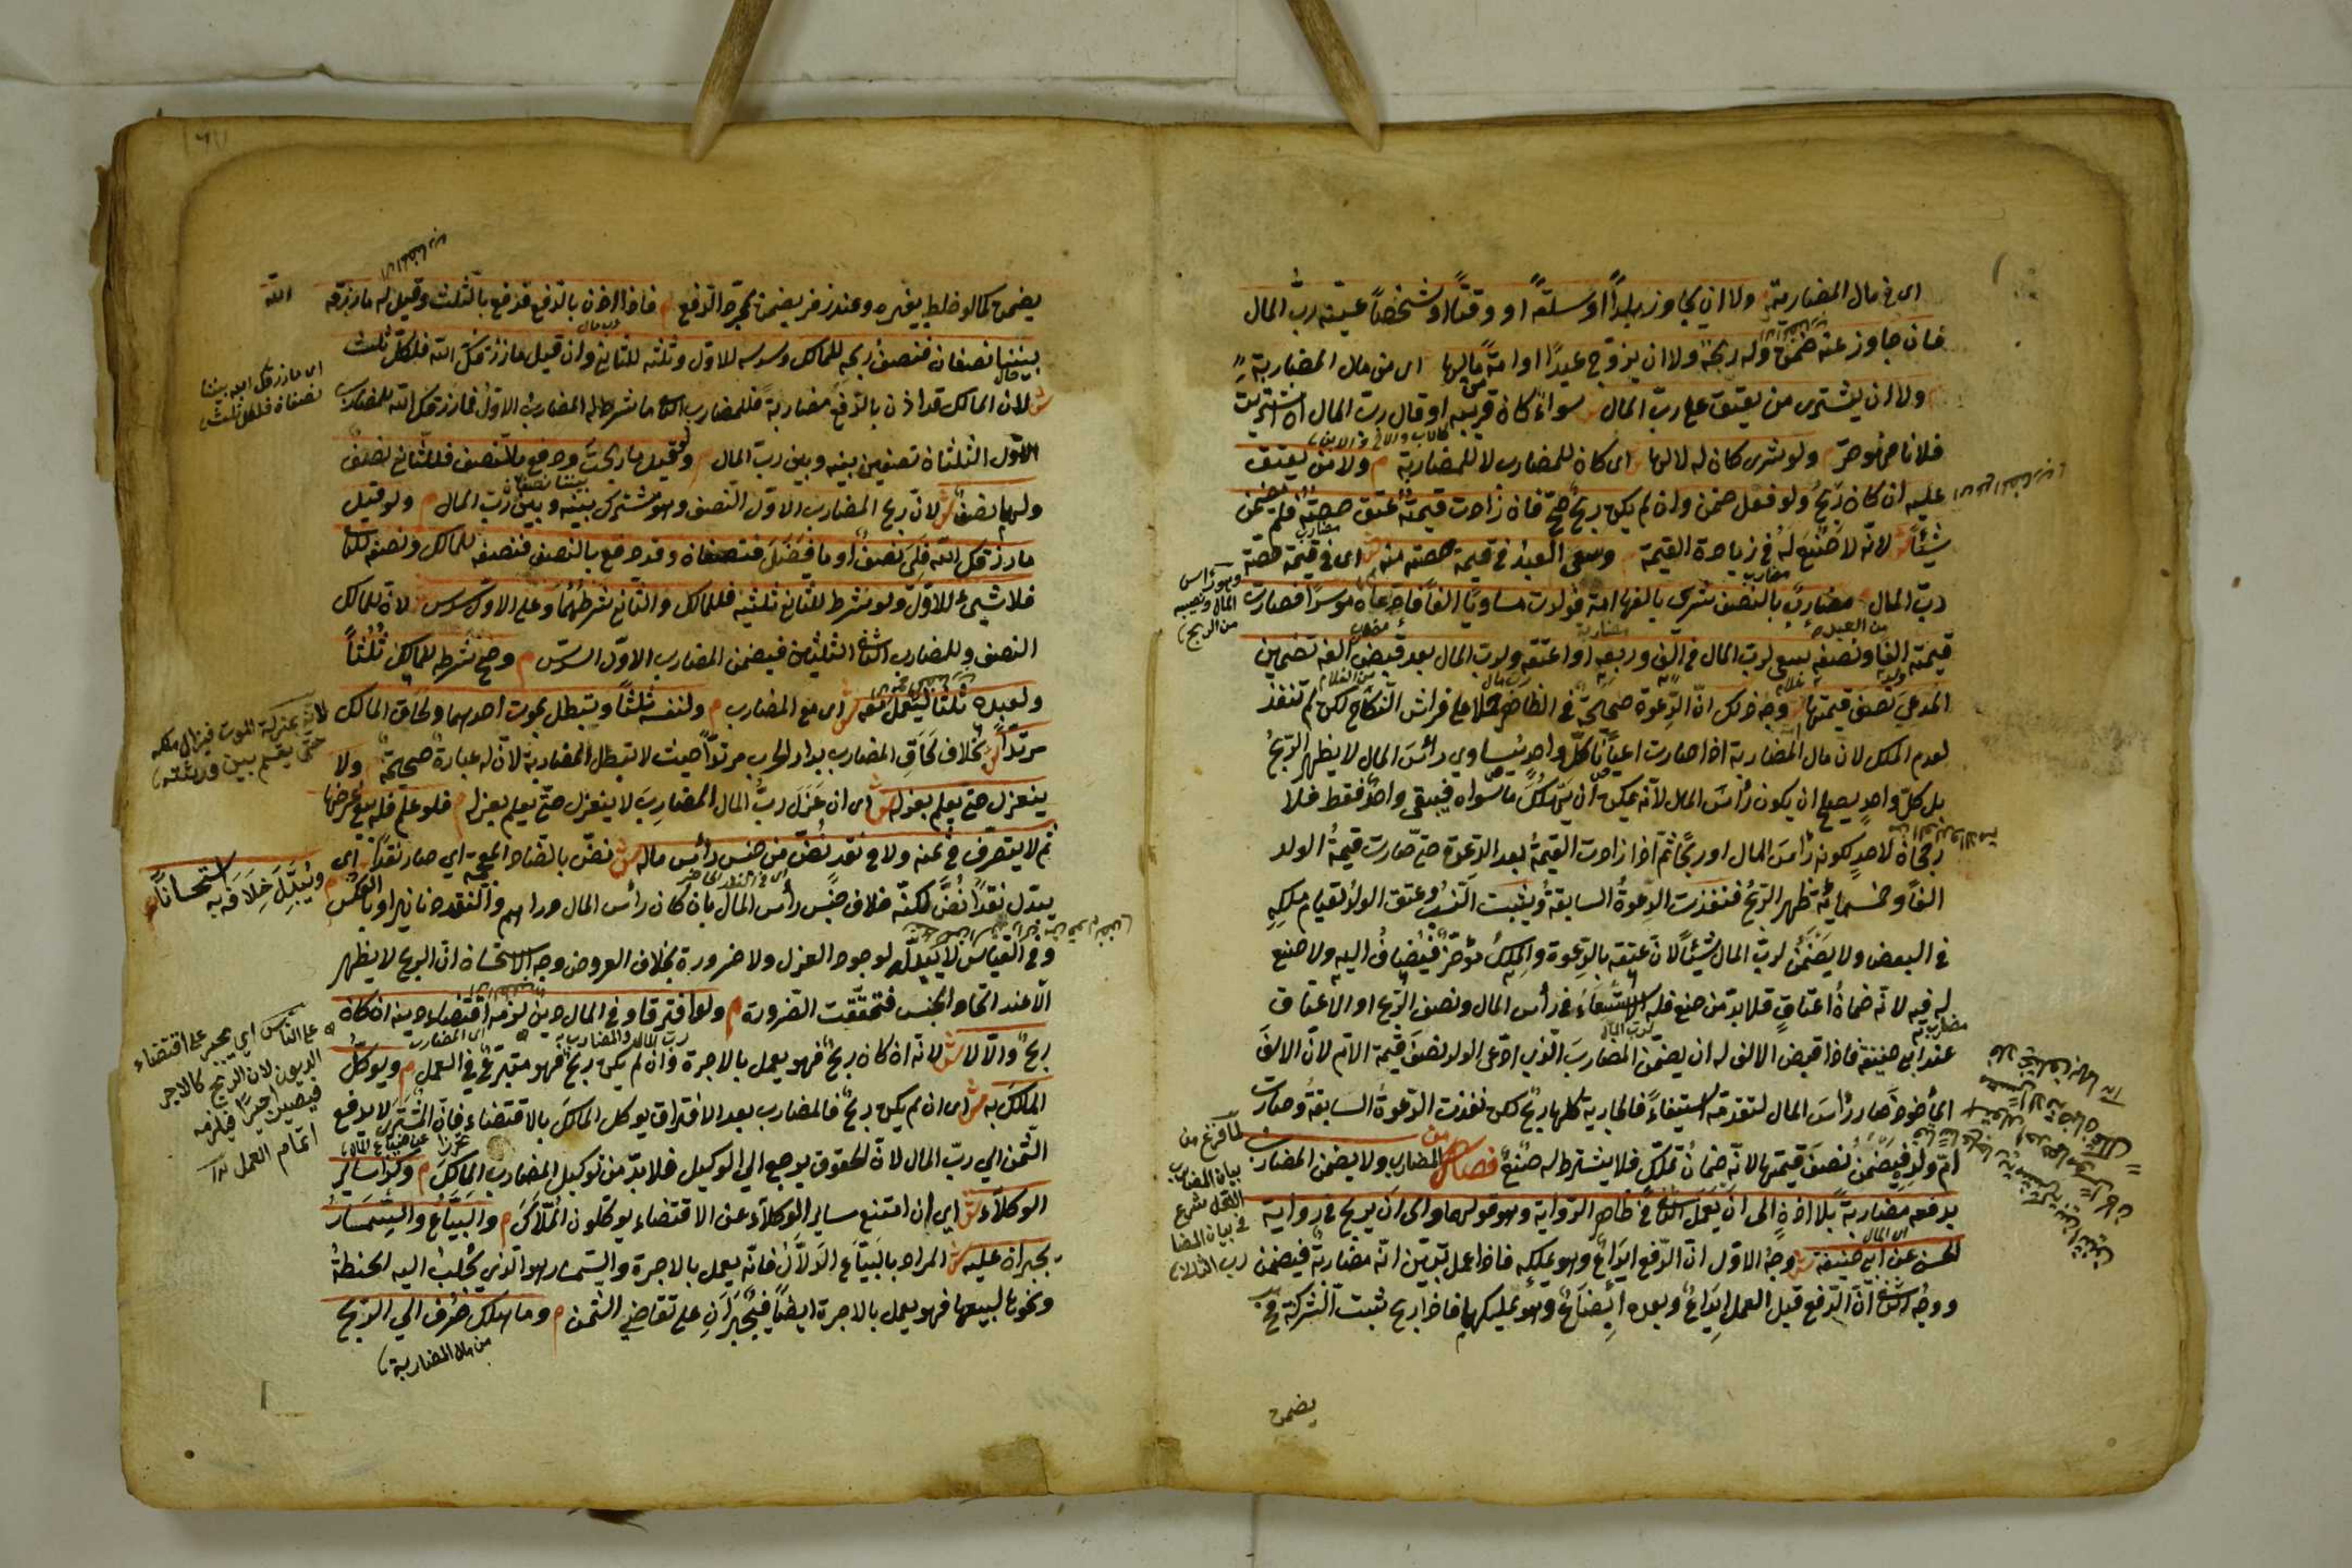 اى فى مال المضاربة ولا ان يجاوز بلداً او سلعةً او وقتاً او شخصاً عيّنه ربّ المال
فان جاوز عنه ضمن وله ربحه ولا ان يزوّج عبدًا او امةً من مالها اى من مال المضاربة
ولا ان يشترى من يعتق على ربّ المال سواءً كان قريبه او قال ربّ المال ان اشتريت
فلانا فهو حرّ ولو شرى كان له لا لها اى كان للمضارب لا للمضاربة م ولا من يعتق
عليه ان كان ربحٌ ولو فعل ضمن وان لم يكن ربحٌ صحّ فان زادت قيمته عتق حصته فلم يضمن
شيئاً لانّه لا صنع له فى زيادة القيمة وسعى العبد فى قيمة حصته منه ش اى فى قيمة حصّة
ربّ المال مضاربٌ بالنصف شرى بالفها امة فولدت مساويًا الفاً فادعاه موسرًا فصارت
قيمته الفا ونصفه سعى لربّ المال فى الف وربعه او اعتقه ولربّ المال بعد قبض الفه تضمين
المدعى نصف قيمتها وجه ذلك انّ الدّعوة صحيحة فى الظاهر حملا على فراش النكاح لكن لم تنفذ
لعدم الملك لان مال المضاربة اذا صارت اعياناً كلّ واحد يساوي رأس المال لا يظهر الربحُ
بل كلّ واحد يصلح ان يكون رأس المال لانّه يمكن ان يهلك ما سواه فيبقى واحدٌ فقط فلا
رجحان لاحدٍ لكونه رأسَ المال او ربحًا ثم اذا زادت القيمةُ بعد الدعوة حتّى صارت قيمةُ الولد
الفًا وخمسمائة ظهر الربحُ فنفذت الدعوةُ السابقةُ ويثبت النسب وعتق الولد لقيام ملكِهِ
فى البعض ولا يضمن لربّ المال شيئاً لانّ عتقه بالدعوة والملك مؤخّرٌ فيُضافُ اليه ولا صنع
له فيه لانّه ضمانُ اعتاقٍ فلا بدّ من صنع فله الاستسعاء فى رأس المال ونصف الربح او الاعتاق
عند ابى حنيفة فاذا قبض الالف له ان يضمّن المضاربَ الّذى ادّعى الولد نصفَ قيمة الامّ لانّ الالف
المأخوذ صار رأسَ المال لتقدّمه استيفاءً فالجارية كلها ربحٌ لكن نفذت الدّعوةُ السابقةُ وصارت
امّ ولدٍ فيضمن نصفَ قيمتها لانّه ضمانُ تملّك فلا يشترط له صنعٌ فصل المضارب ولا يضمن المضارب
بدفعه مضاربةً بلا اذنٍ الى ان يعمل الثانى فى ظاهر الرواية وهو قولهما والى ان يربح فى رواية
الحسن عن ابى حنيفة ش وجهُ الاول انّ الدّفع ايداعٌ وهو يملكه فاذا عمل تبيّن انّه مضاربةٌ فيضمن
ووجهُ الثانى انّ الدّفع قبل العمل ايداعٌ وبعده ابضاعٌ وهو يملكهما فاذا ربح ثبت الشركة فح
يضمن
لما فرغ من
بيان المضارب
الاوّل شرع
فى بيان المضا
رب الثانى
وهو رأس
المال ونصيبه
من الربح
يضمن كما لو خلط بغيره وعند زفر يضمن بمجرّد الدّفع م فاذا اذن بالدّفع فدفع بالثلث وقيل له ما رزقه
الله
بيننا نصفان فنصفُ ربحه للمالك وسدسه للاوّل وثلثه للثانى وان قيل ما رزقك الله فلكلّ ثلث
اى ما رزقك الله بيننا
نصفان فلكل ثلث
ش لان المالك قد اذن بالدّفع مضاربةً فللمضارب الثانى ما شرط له المضارب الاوّل فما رزقك الله للمضارب
الاوّل الثلثان نصفين بينه وبين ربّ المال م ولو قيل ما ربحتَ ودفع بالنّصف فللثّانى نصفٌ
ولهما نصفٌ ش لانّ ربح المضارب الاوّل النّصف وهو مشترك بينه وبين ربّ المال م ولو قيل
ما رزقك الله فلى نصفٌ او ما فضل فنصفان وقد دفع بالنصف فنصفه للمالك ونصفه للثانى
فلا شىء للاوّل ولو شرط للثانى ثلثيه فللمالك والثانى شرطهما وعلى الاوّل سدس ش لانّ للمالك
النصف وللمضارب الثانى الثلثين فيضمن المضارب الاوّل السدس م وصحّ شرطه للمالك ثُلُثاً
ولعبده ثلثاً ليعمل معه ش اى مع المضارب م ولنفسه ثلثاً وتبطل بموت احدهما ولحاق المالك
لانّه بمنزلة الموت فيزال ملكه
حتّى يقسم بين ورثته
مرتدّاً ش بخلاف لحاق المضارب بدار الحرب مرتدّاً حيث لا تبطل المضاربة لانّ له عبارةً صحيحةً ولا
ينعزل حتّى يعلم بعزله ش اى ان عزل ربّ المال المضاربَ لا ينعزل حتّى يعلم بعزله م فلو علم فله بيع عرضها
ثم لا يتصرّف فى ثمنه ولا فى نقد نضّ من جنس رأس ماله ش نضّ بالضاد المعجمة اي صار نقدًا اى
يبدّل نقدًا نُضَّ لكنّه خلاف جنس رأس المال بان كان رأس المال دراهم والنقد دنانير او بالعكس م ويُبدّل خلافه به استحساناً
وفى القياس لا يبدّله لوجود العزل ولا ضرورة بخلاف العروض وجه الاستحسان انّ الربح لا يظهر
الّا عند اتّحاد الجنس فتحقّقت الضّرورة م ولو افترقا وفى المال دينٌ لزمه اقتضاء دينه ان كان
ربحٌ والّا لا ش لانّه ان كان ربحٌ فهو يعمل بالاجرة وان لم يكن ربحٌ فهو متبرّعٌ فى العمل م ويوكّلُ
المالكَ به ش اى ان لم يكن ربحٌ فالمضارب بعد الافتراق يوكل المالكَ بالاقتضاء فانّ المشترى لا يدفع
الثّمن الى ربّ المال لانّ الحقوق يرجع الى الوكيل فلا بدّ من توكيل المضارب المالكَ م وكذا ساير
الوكلاء ش اى ان امتنع ساير الوكلاء عن الاقتضاء يوكلون الملّاك م والبيّاع والسّمسار
يجبران عليه ش المراد بالبيّاع الدلّال فانّه يعمل بالاجرة والسّمسار هو الّذى يُجلب اليه الحنطةُ
ونحوها لبيعها فهو يعمل بالاجرة ايضًا فيُجبران على تقاضى الثّمن م وما هلك صُرف الى الربح
من مال المضاربة
على الناس اى يجبر على اقتضاء
الديون لان الربح كالاجر
فيصير اجيرًا فيلزمه
اتمام العمل